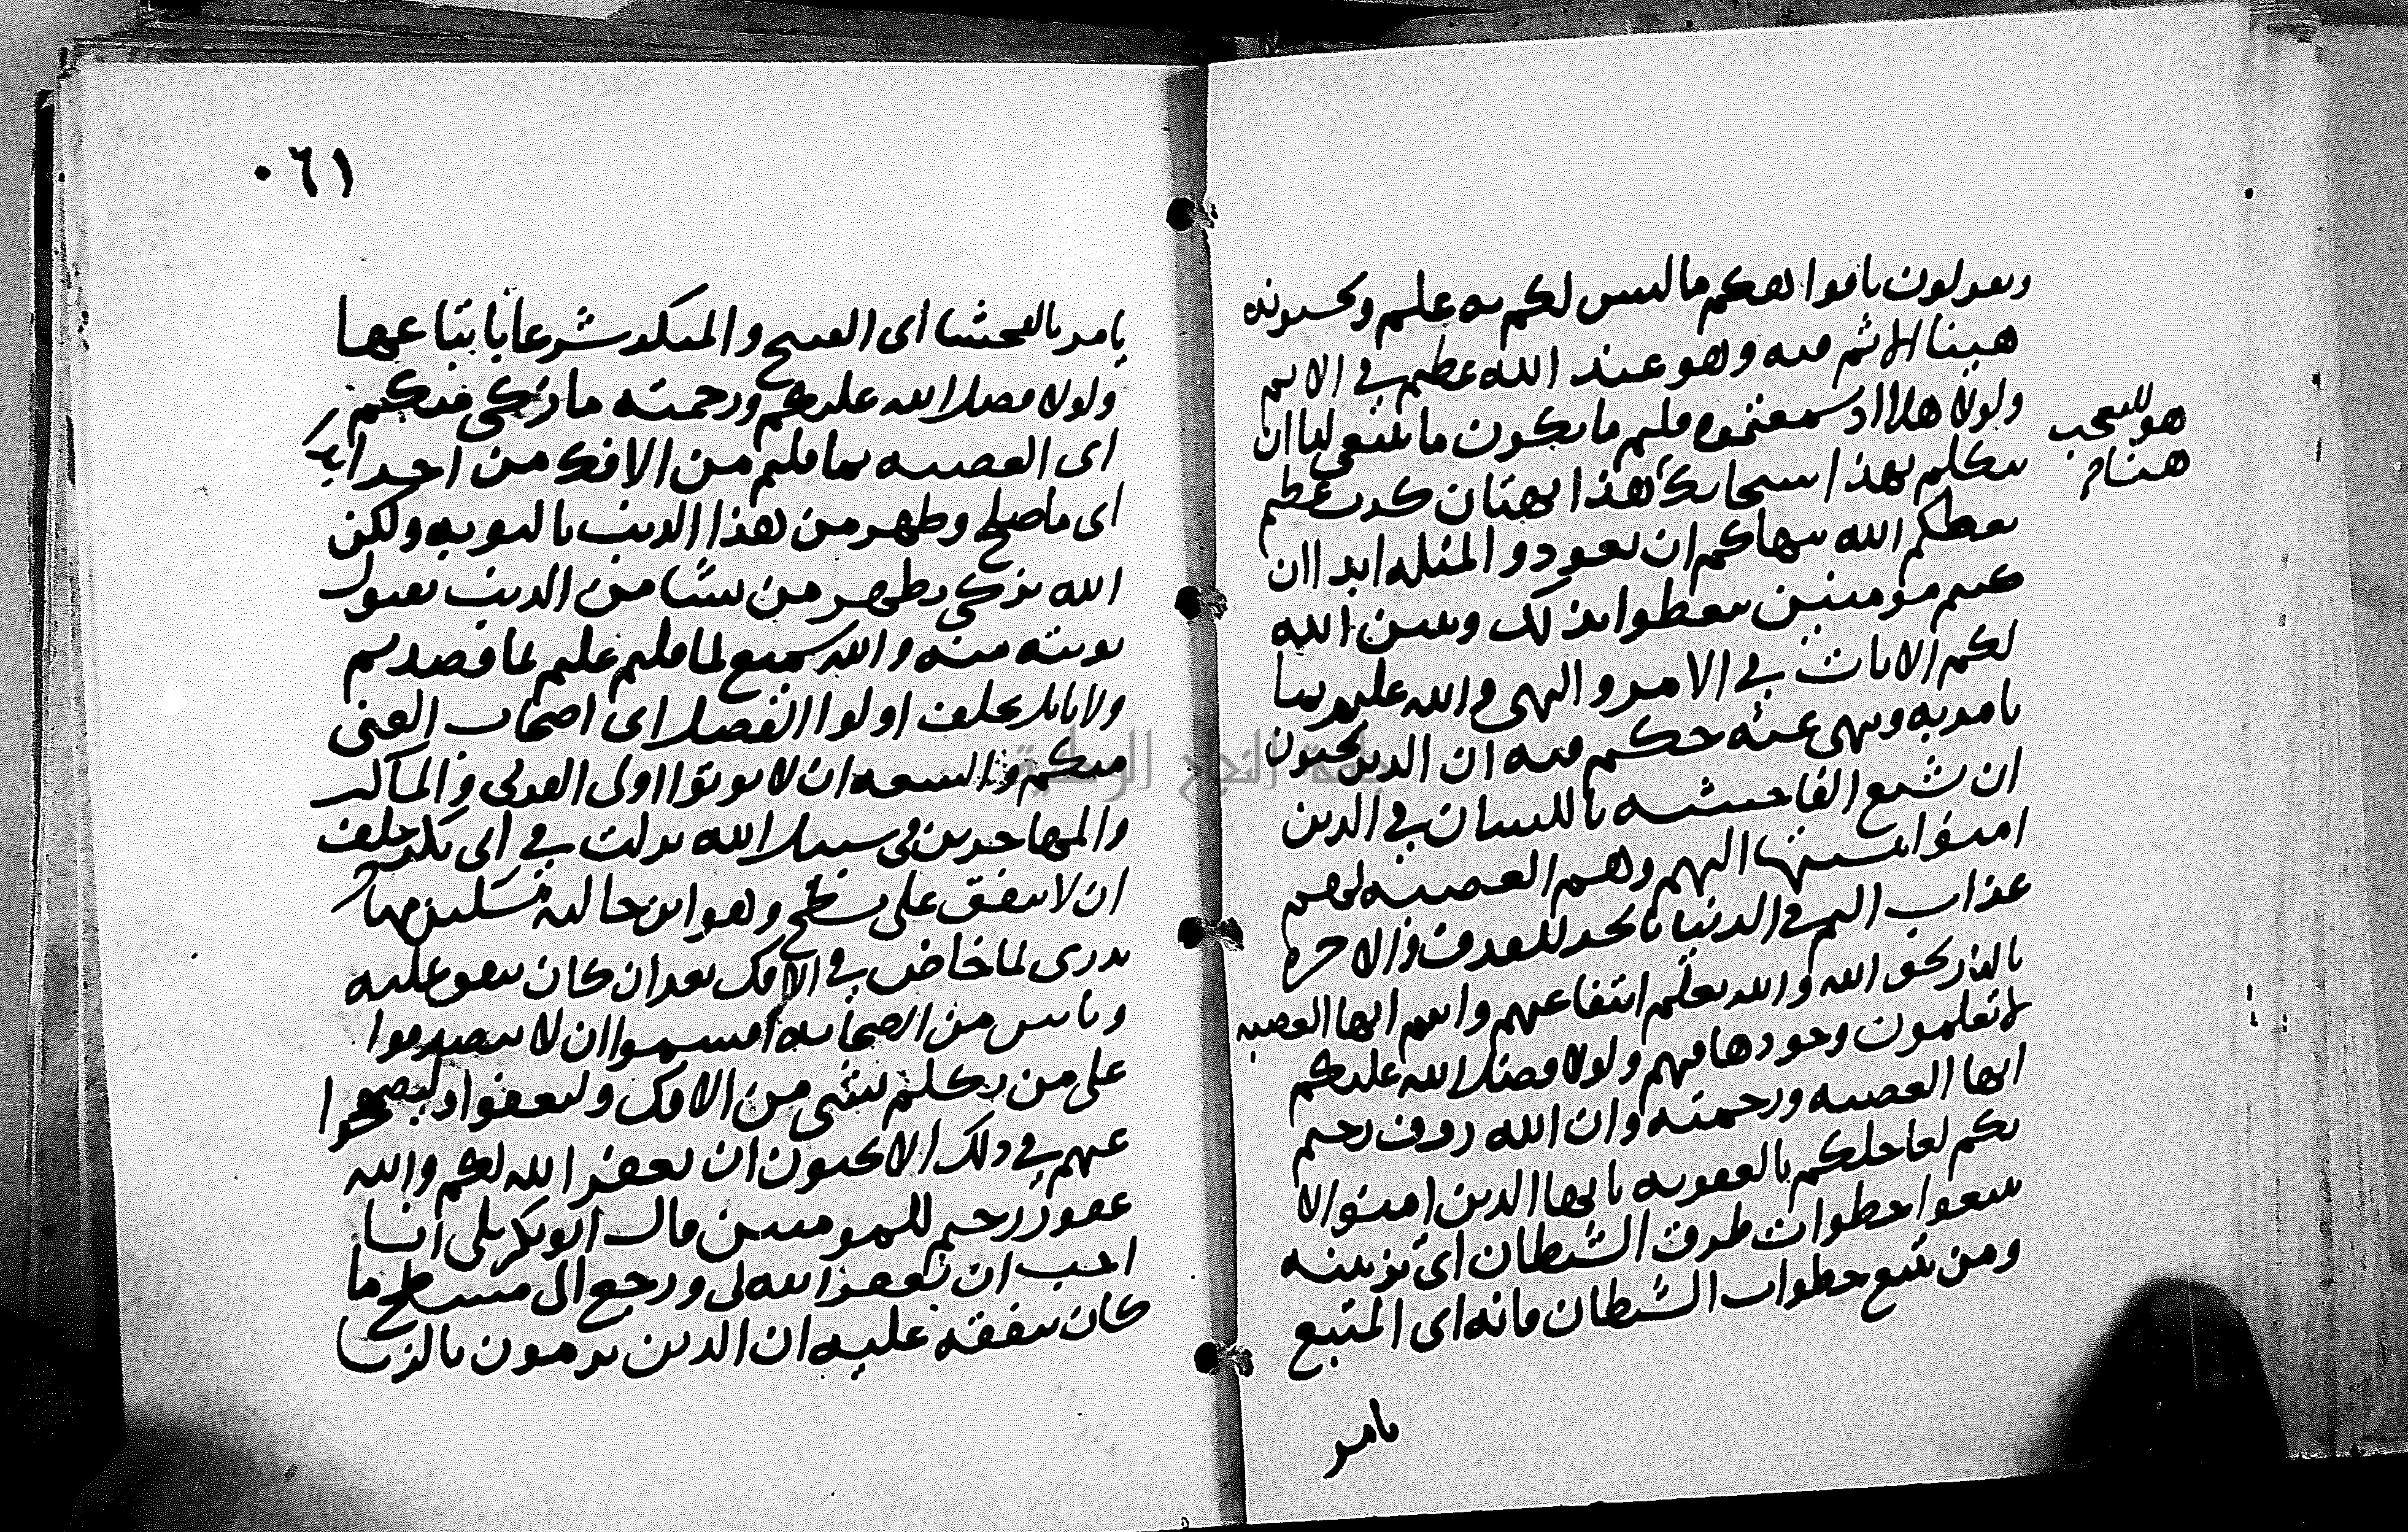 وتقولون بافواهكم ما ليس لكم به علم وتحسبونه
هينا لا اثم فيه وهو عند الله عظيم في الاثم
ولولا هلا اذ سمعتموه قلتم ما يكون ما ينبغي لنا ان
نتكلم بهذا سبحانك هذا بهتان كذب عظيم
هو للتعجب
هنا
يعظكم الله ينهاكم ان تعودوا لمثله ابدا ان
كنتم مومنين تتعظوا بذلك ويبين الله
لكم الايات في الامر والنهي والله عليم بما
يامر به وينهى عنه حكيم فيه ان الذين يحبون
ان تشيع الفاحشه باللسان في الذين
امنوا بنسبتها اليهم وهم العصبه لهم
عذاب اليم في الدنيا بالحد للقذف والاخره
بالنار لحق الله والله يعلم انتفاعهم وانتم ايها العصبه
لا تعلمون وجودها فيهم ولولا فضل الله عليكم
ايها العصبه ورحمته وان الله روف رحيم
بكم لعاجلكم بالعقوبه يا ايها الذين امنوا لا
تتبعوا خطوات طرق الشيطان اي تزيينه
ومن يتبع خطوات الشيطان فانه اي المتبع
يامر
٠٦١
يامر بالفحشا اي القبيح والمنكر شرعا باتباعها
ولولا فضل الله عليكم ورحمته ما زكى منكم
اي العصبه بما قلتم من الافك من احد ابدا
اي ما صلح وطهر من هذا الذنب بالتوبه ولكن
الله يزكي يطهر من يشا من الذنب بقبول
توبته منه والله سميع لما قلتم عليم لما قصدتم
ولا ياتل يحلف اولوا الفضل اي اصحاب الغنى
منكم والسعه ان لا يوتوا اولى القربى والمساكين
والمهاجرين في سبيل الله نزلت في ابي بكر حلف
ان لا ينفق على مسطح وهو ابن خالته مسكين مهاجر
بدرى لما خاض في الافك بعد ان كان ينفق عليه
وناس من الصحابه اقسموا ان لا يتصدقوا
على من تكلم بشي من الافك وليعفوا وليصفحوا
عنهم في ذلك الا تحبون ان يغفر الله لكم والله
غفور رحيم للمومنين قال ابو بكر بلى انا
احب ان يغفر الله لي ورجع الى مسطح ما
كان ينفقه عليه ان الذين يرمون بالزنا